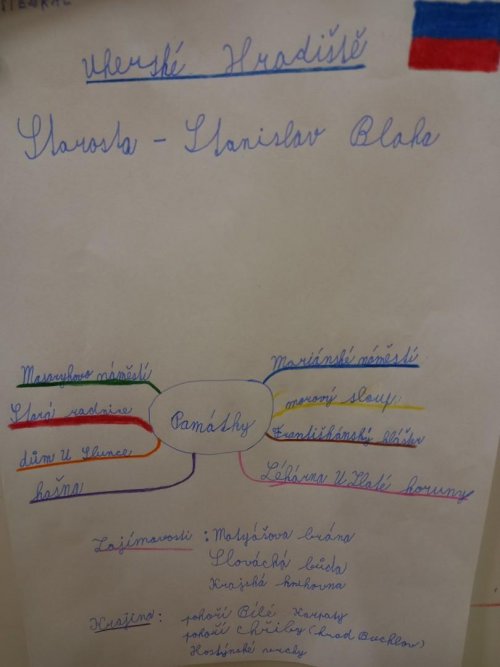 Uherské Hradiště
Starosta - Stanislav Blaha
Masarykovo náměstí
Mariánské náměstí
Stará radnice
Památky
morový sloup
Františkánský klášter
dům U Slunce
kašna
Lékárna U Zlaté koruny
Zajímavosti : Matyášova brána
Slovácká búda
Krajská knihovna
Krajina : pohoří Bílé Karpaty
pohoří Chřiby (hrad Buchlov)
Hostýnské vrchy